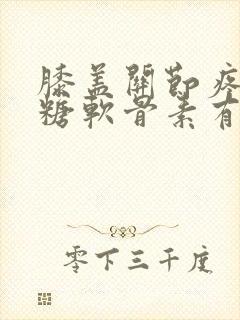 膝蓋關節疼
糖軟骨素有
零下三千度